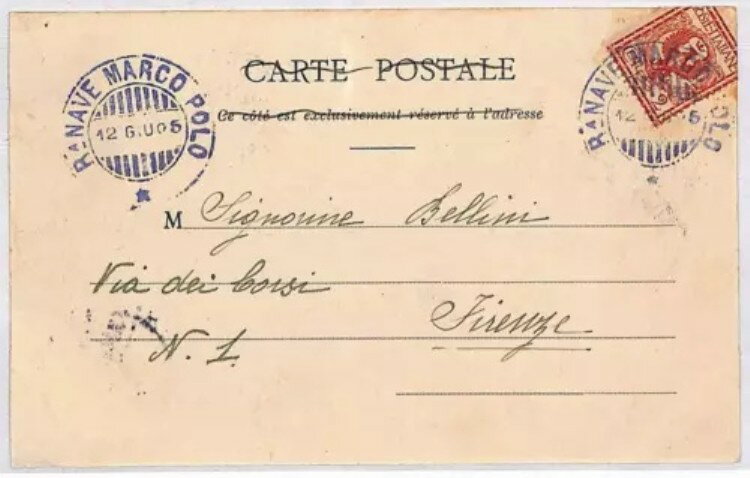 Rᴬ NAVE MARCO POLO
12 GIU 05
CARTE POSTALE
Ce côté est exclusivement réservé à l'adresse
POSTE ITALIANE
Rᴬ NAVE MARCO POLO
12 05
M Signorine Bellini
Via dei Corsi
Firenze
N. 1.